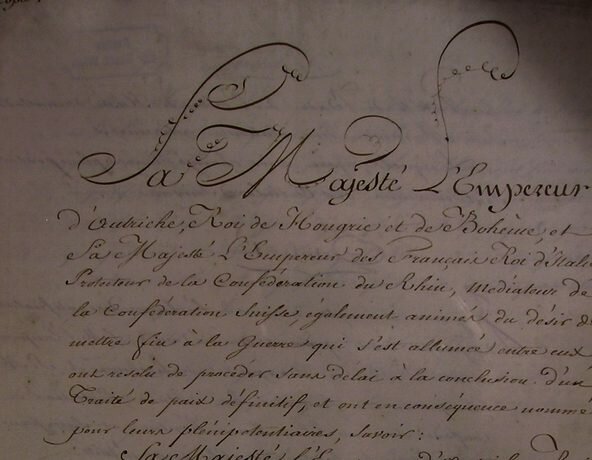 Sa Majesté L'Empereur
d'Autriche, Roi de Hongrie et de Bohème, et
Sa Majesté L'Empereur des Français Roi d'Italie
Protecteur de la Confédération du Rhin, Médiateur de
la Confédération Suisse, également animés du désir de
mettre fin à la Guerre qui s'est allumée entre eux
ont résolu de procéder sans délai à la conclusion d'un
Traité de paix définitif, et ont en conséquence nommé
pour leurs plénipotentiaires, savoir:
Sa Majesté